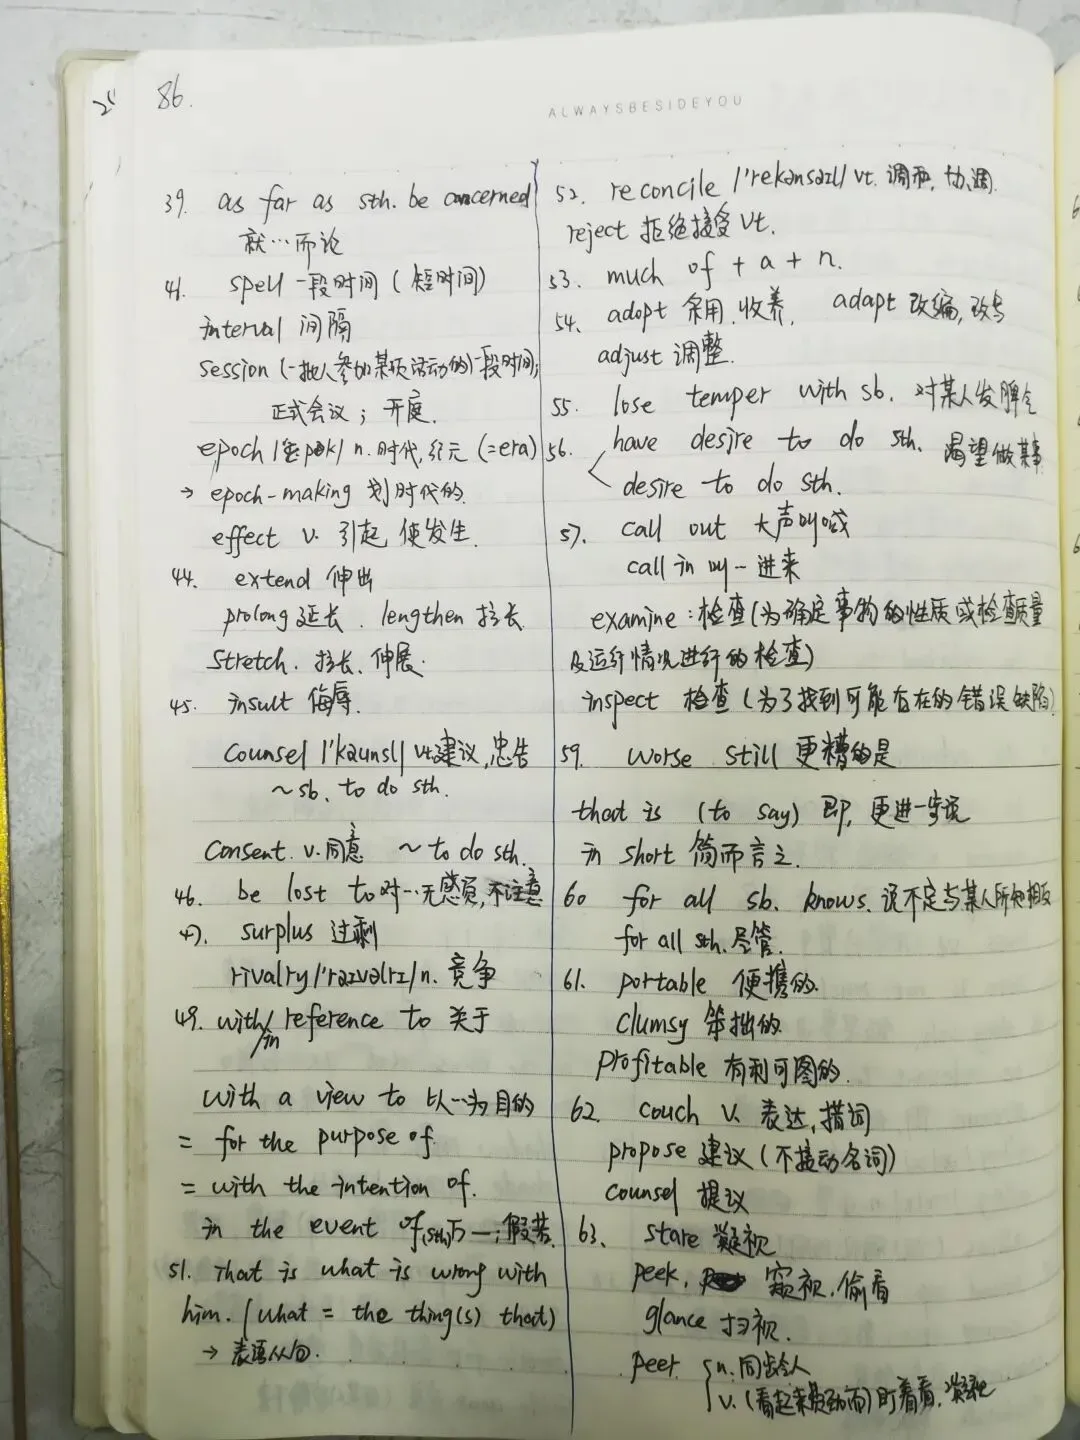 86.
ALWAYSBESIDEYOU
39. as far as sth. be concerned
就…而论
41. spell 一段时间(短时间)
interval 间隔
session (一批人参加某项活动的)一段时间;
正式会议; 开庭.
epoch n. 时代, 纪元 (=era)
→ epoch-making 划时代的.
effect v. 引起, 使发生.
44. extend 伸出
prolong 延长. lengthen 拉长
stretch. 拉长、伸展.
45. insult 侮辱.
counsel /'kaunsl/ vt.建议,忠告
~ sb. to do sth.
consent. v.同意 ~ to do sth.
46. be lost to 对…无感觉,不注意
47. surplus 过剩
rivalry /'raɪvəlrɪ/ n. 竞争
49. with/in reference to 关于
with a view to 以…为目的
= for the purpose of.
= with the intention of.
in the event of (sth)万一; 假若.
51. That is what is wrong with
him. (what = the thing(s) that)
→ 表语从句.
52. reconcile /'rekənsaɪl/ vt. 调和, 协调.
reject 拒绝接受 vt.
53. much of + a + n.
54. adopt 采用, 收养, adapt 改编, 改写
adjust 调整.
55. lose temper with sb. 对某人发脾气
56. have desire to do sth. 渴望做某事
desire to do sth.
57. call out 大声叫喊
call in 叫…进来
examine: 检查(为确定事物的性质或检查质量
及运行情况进行的检查)
inspect 检查(为了找到可能存在的错误缺陷)
59. worse still 更糟的是
that is (to say) 即, 更进一步说
in short 简而言之.
60 for all sb. knows. 说不定与某人所知相反
for all sth. 尽管.
61. portable 便携的.
clumsy 笨拙的
profitable 有利可图的.
62. couch v. 表达, 措词
propose 建议(不接动名词)
counsel 提议
63. stare 凝视
peek, 窥视, 偷看
glance 扫视.
peer { n. 同龄人
v. (看起来费劲而)盯着看, 凝视